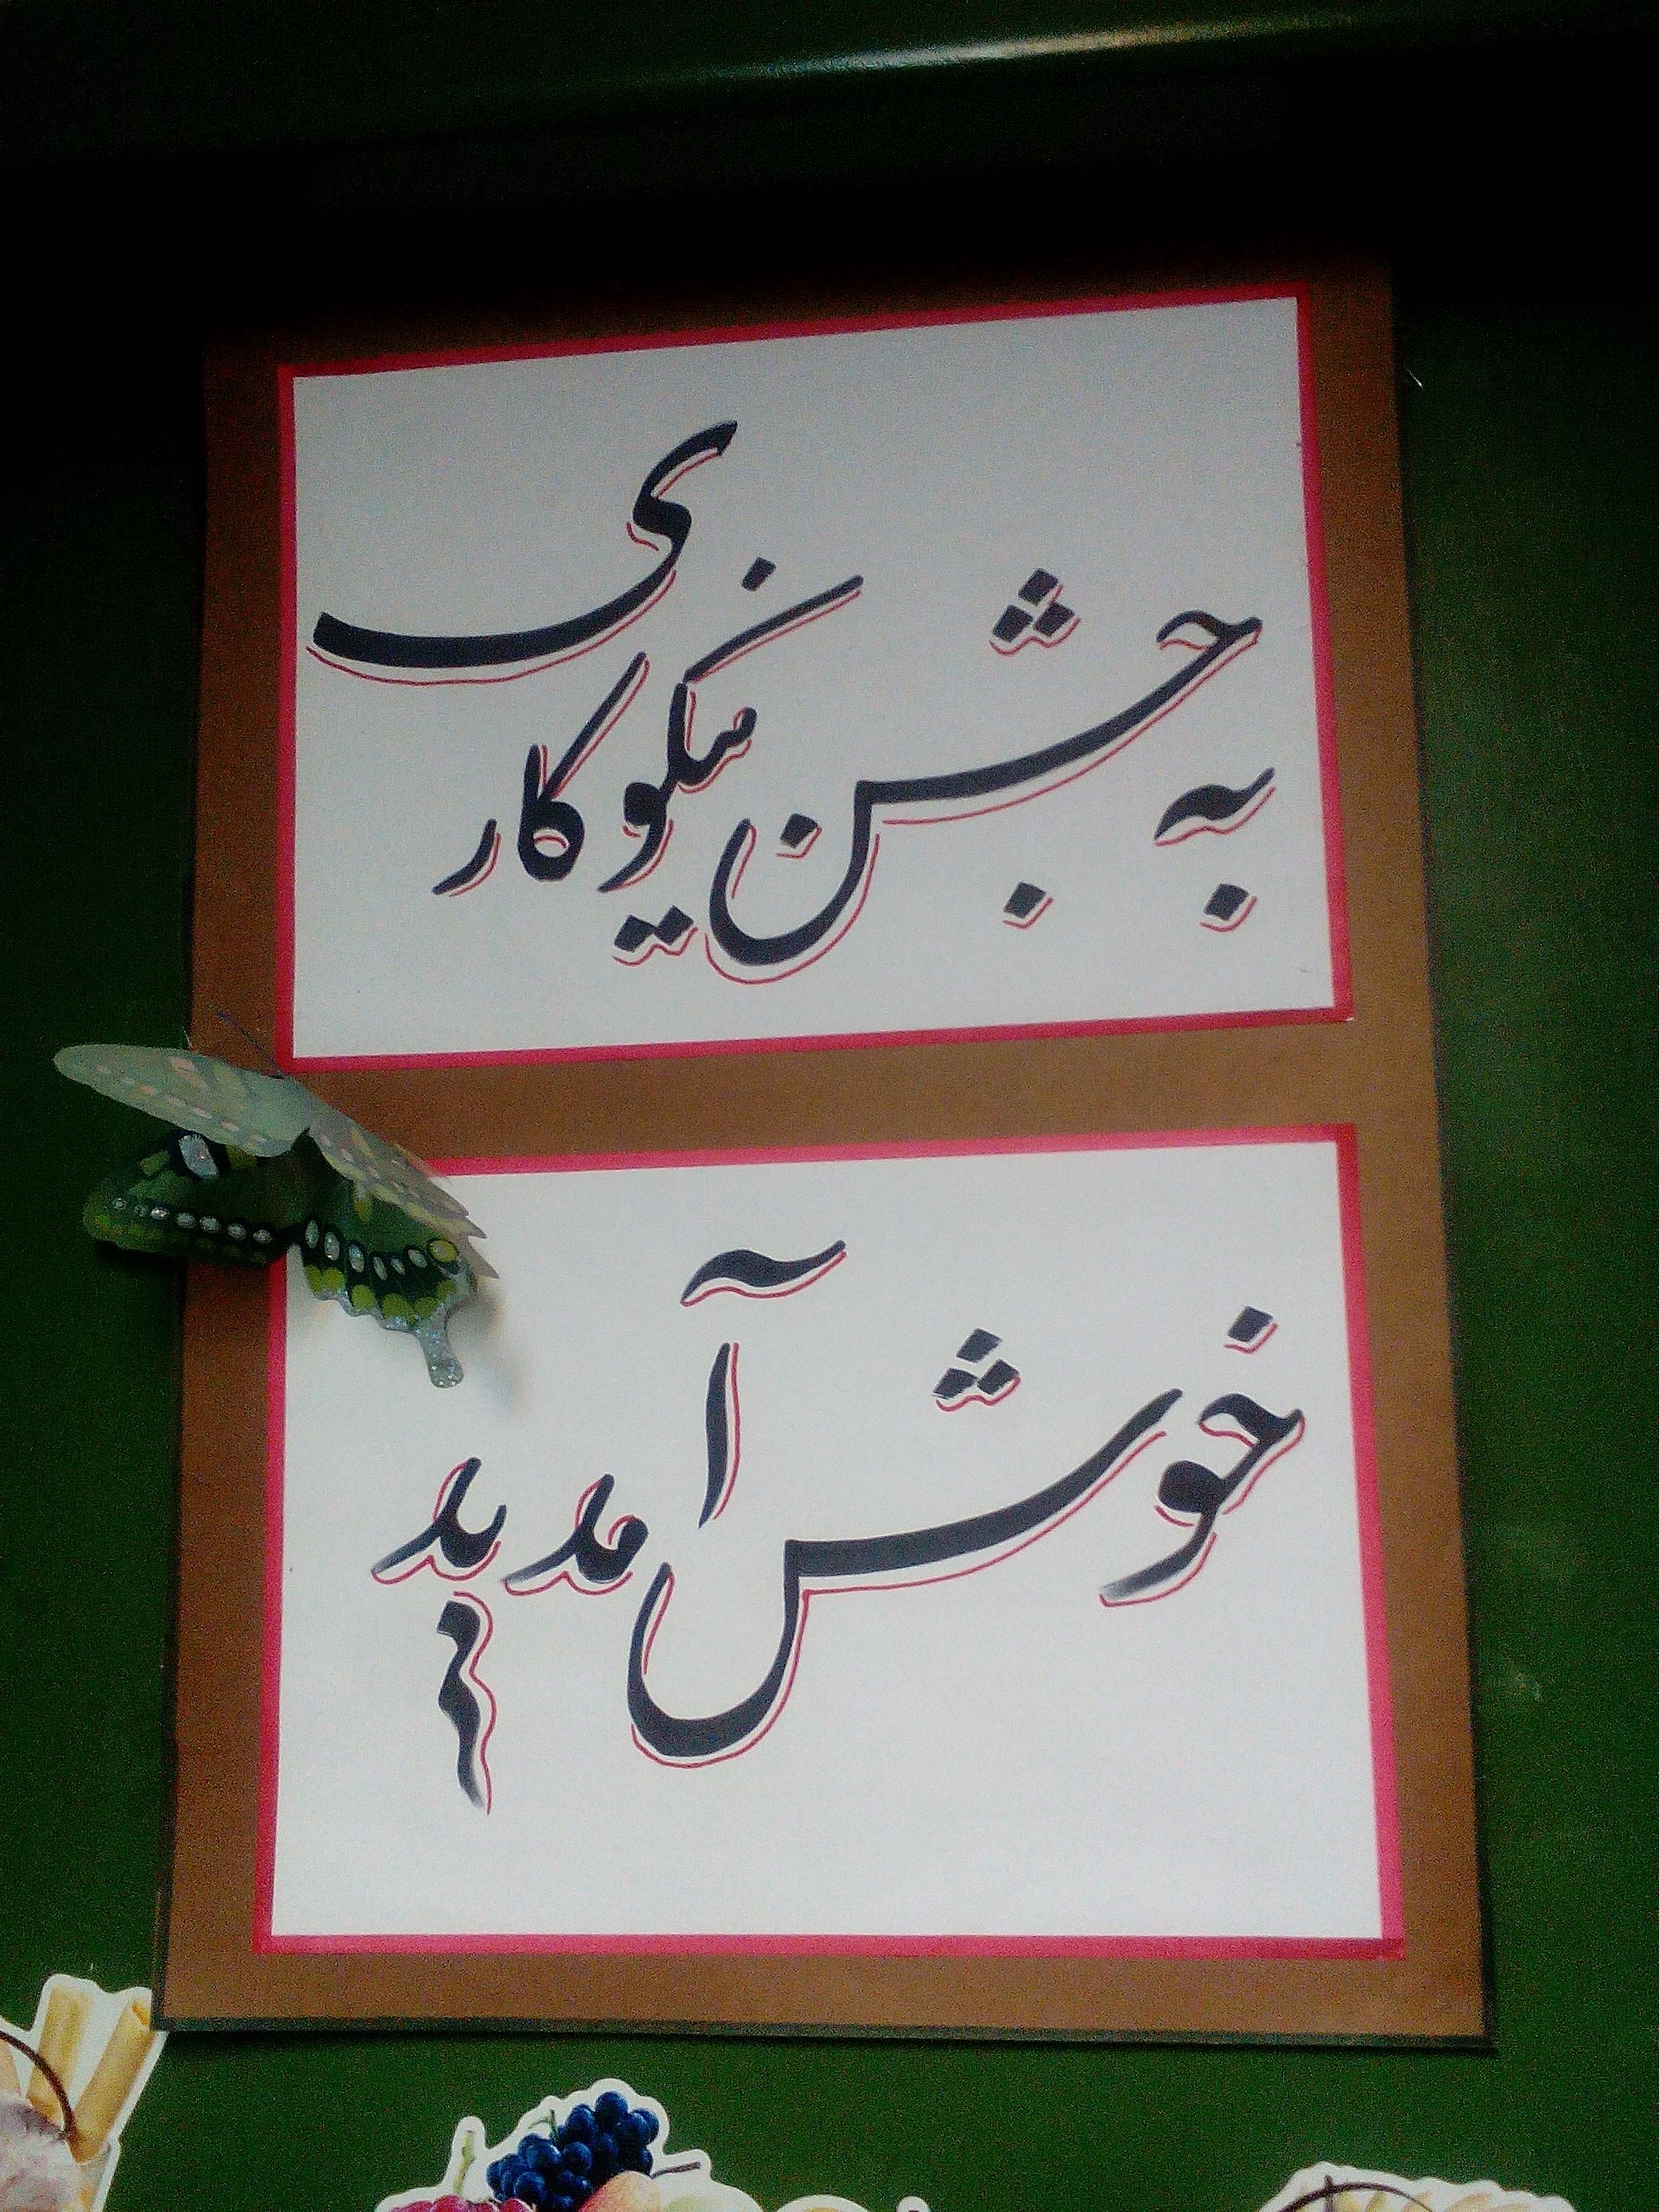 به جشن نیکوکاری
خوش آمدید